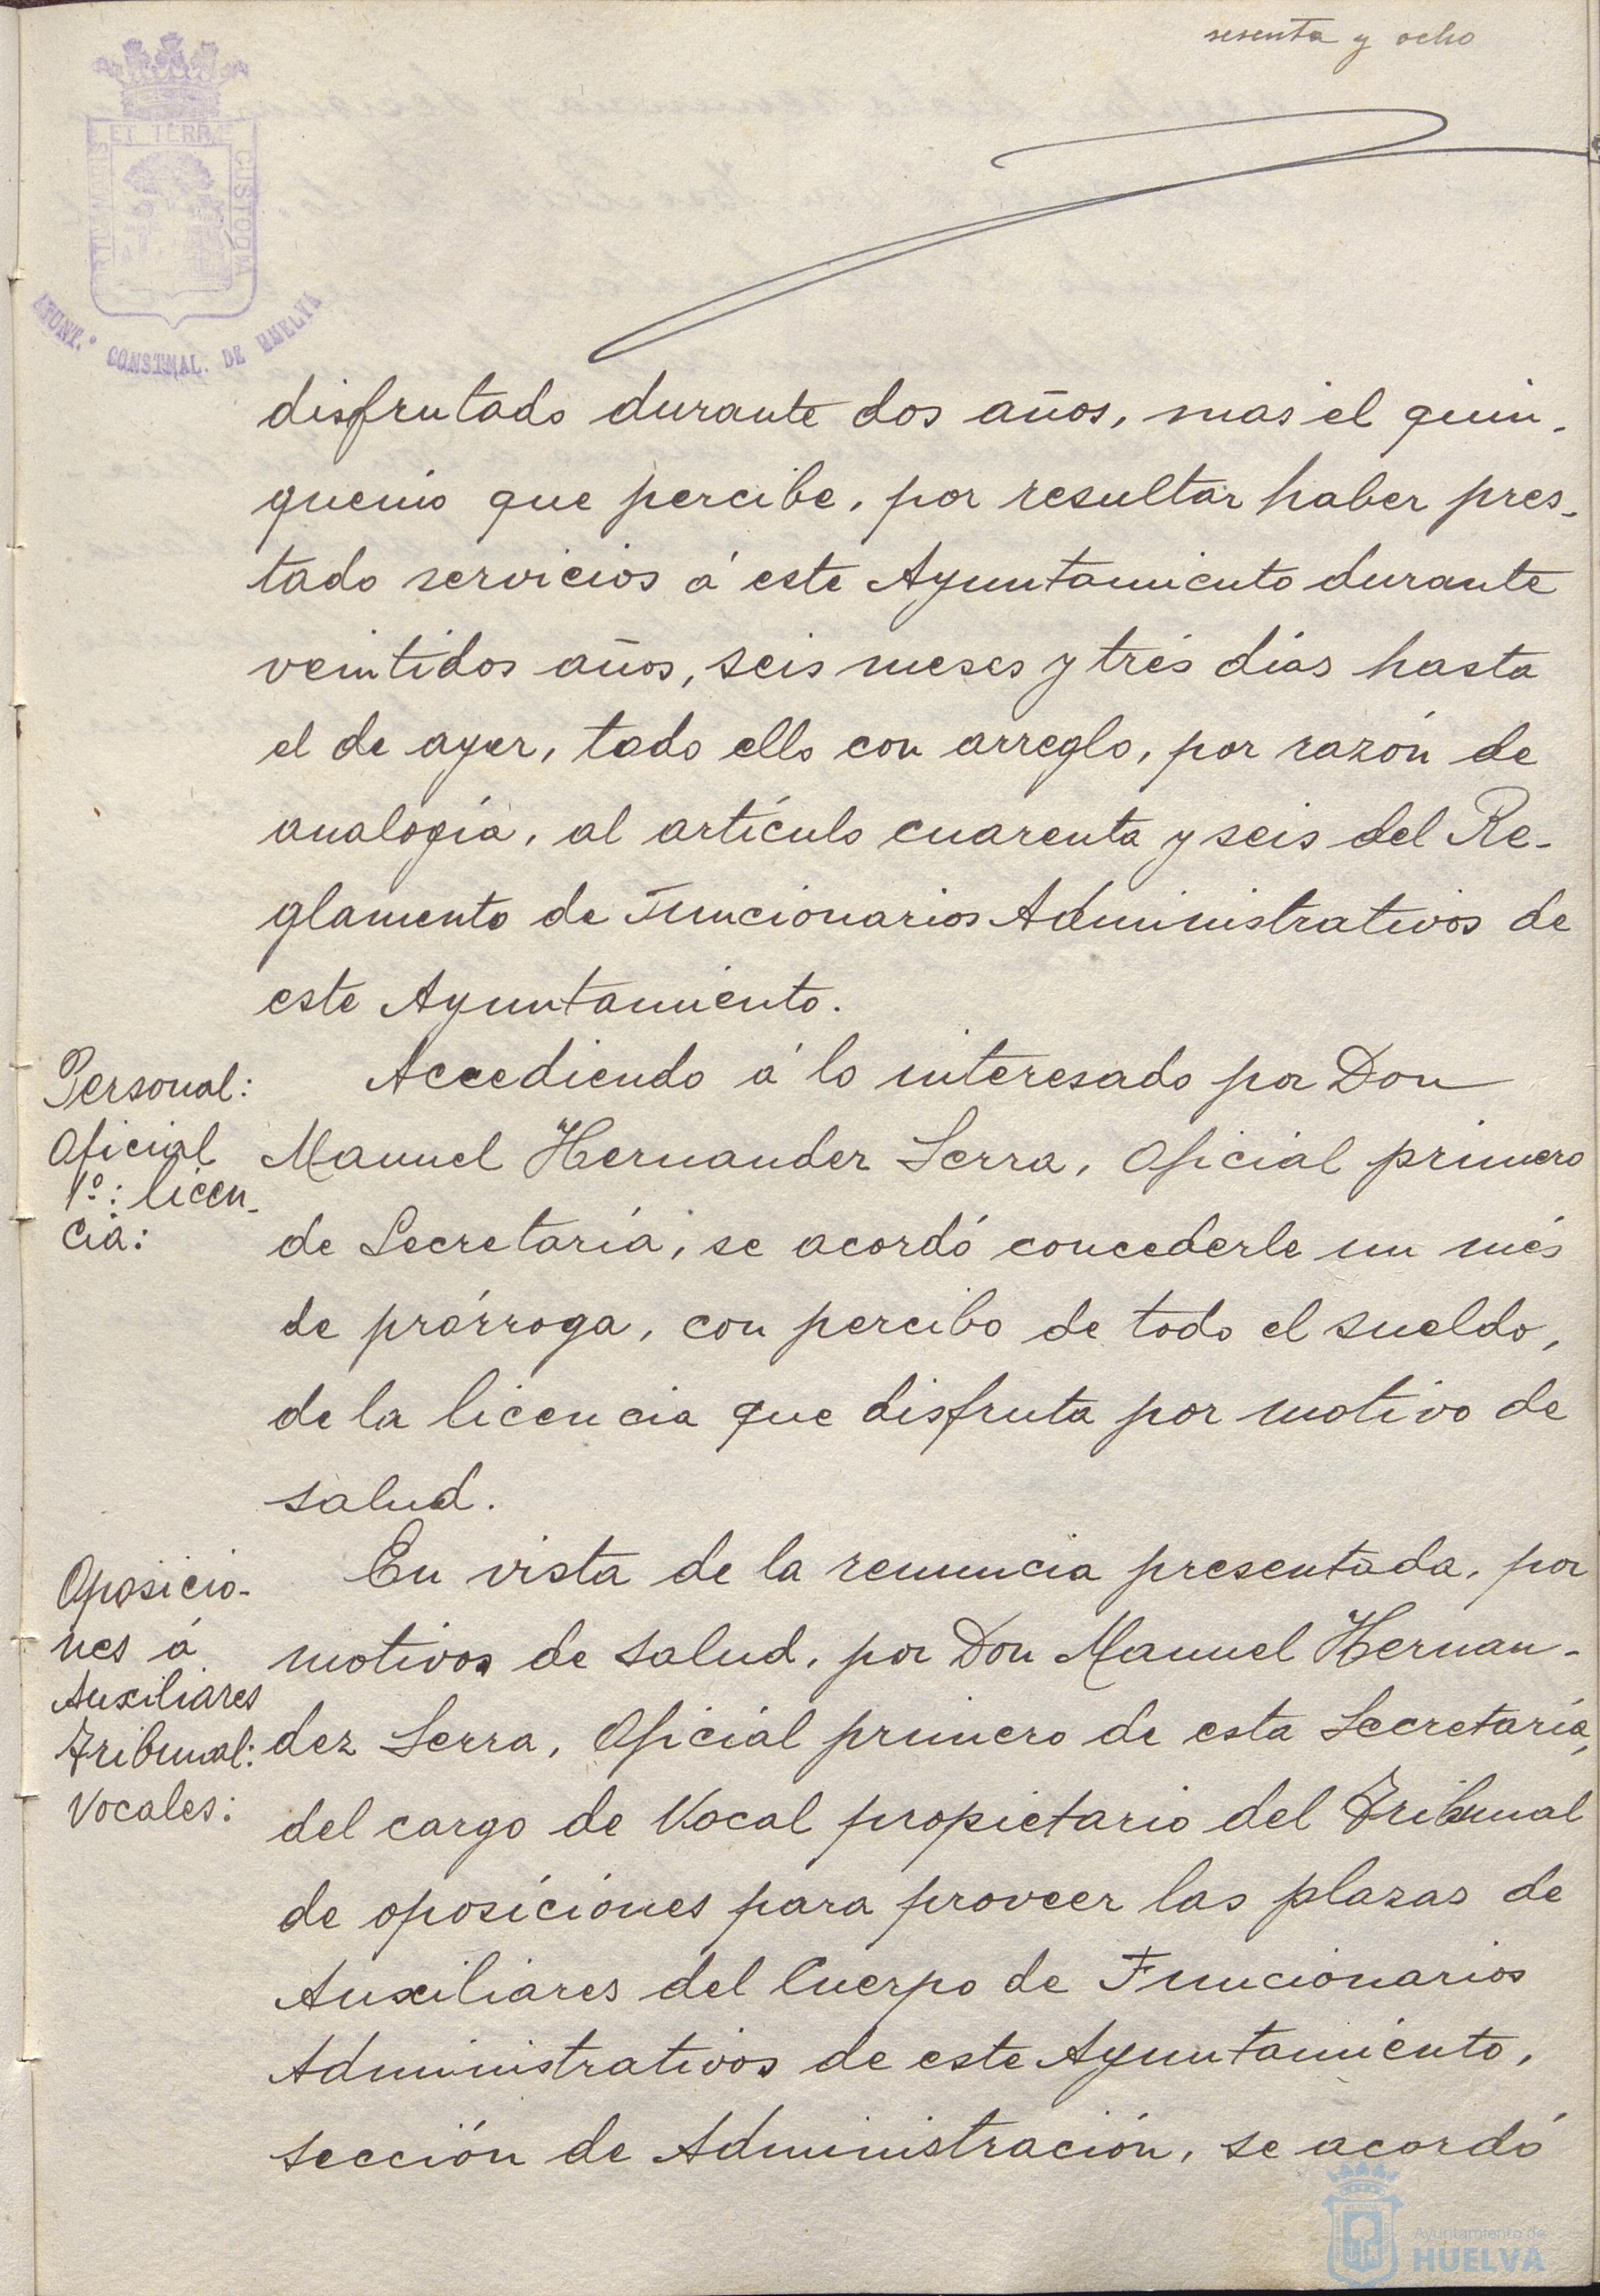 sesenta y ocho
ET TERRÆ
CUSTODIA
AYUNT.º CONSTNAL. DE HUELVA
disfrutado durante dos años, mas el quin-
quenio que percibe, por resultar haber pres-
tado servicios á este Ayuntamiento durante
veintidos años, seis meses y trés días hasta
el de ayer, todo ello con arreglo, por razón de
analogía, al artículo cuarenta y seis del Re-
glamento de Funcionarios Administrativos de
este Ayuntamiento.
Personal:
Oficial
1º: licen-
cia:
Accediendo á lo interesado por Don
Manuel Hernandez Serra, Oficial primero
de Secretaría, se acordó concederle un més
de prórroga, con percibo de todo el sueldo,
de la licencia que disfruta por motivo de
salud.
Oposicio-
nes á
Auxiliares
Tribunal:
Vocales:
En vista de la renuncia presentada, por
motivos de salud, por Don Manuel Hernan-
dez Serra, Oficial primero de esta Secretaría,
del cargo de Vocal propietario del Tribunal
de oposiciones para proveer las plazas de
Auxiliares del Cuerpo de Funcionarios
Administrativos de este Ayuntamiento,
sección de Administración, se acordó
Ayuntamiento de
HUELVA